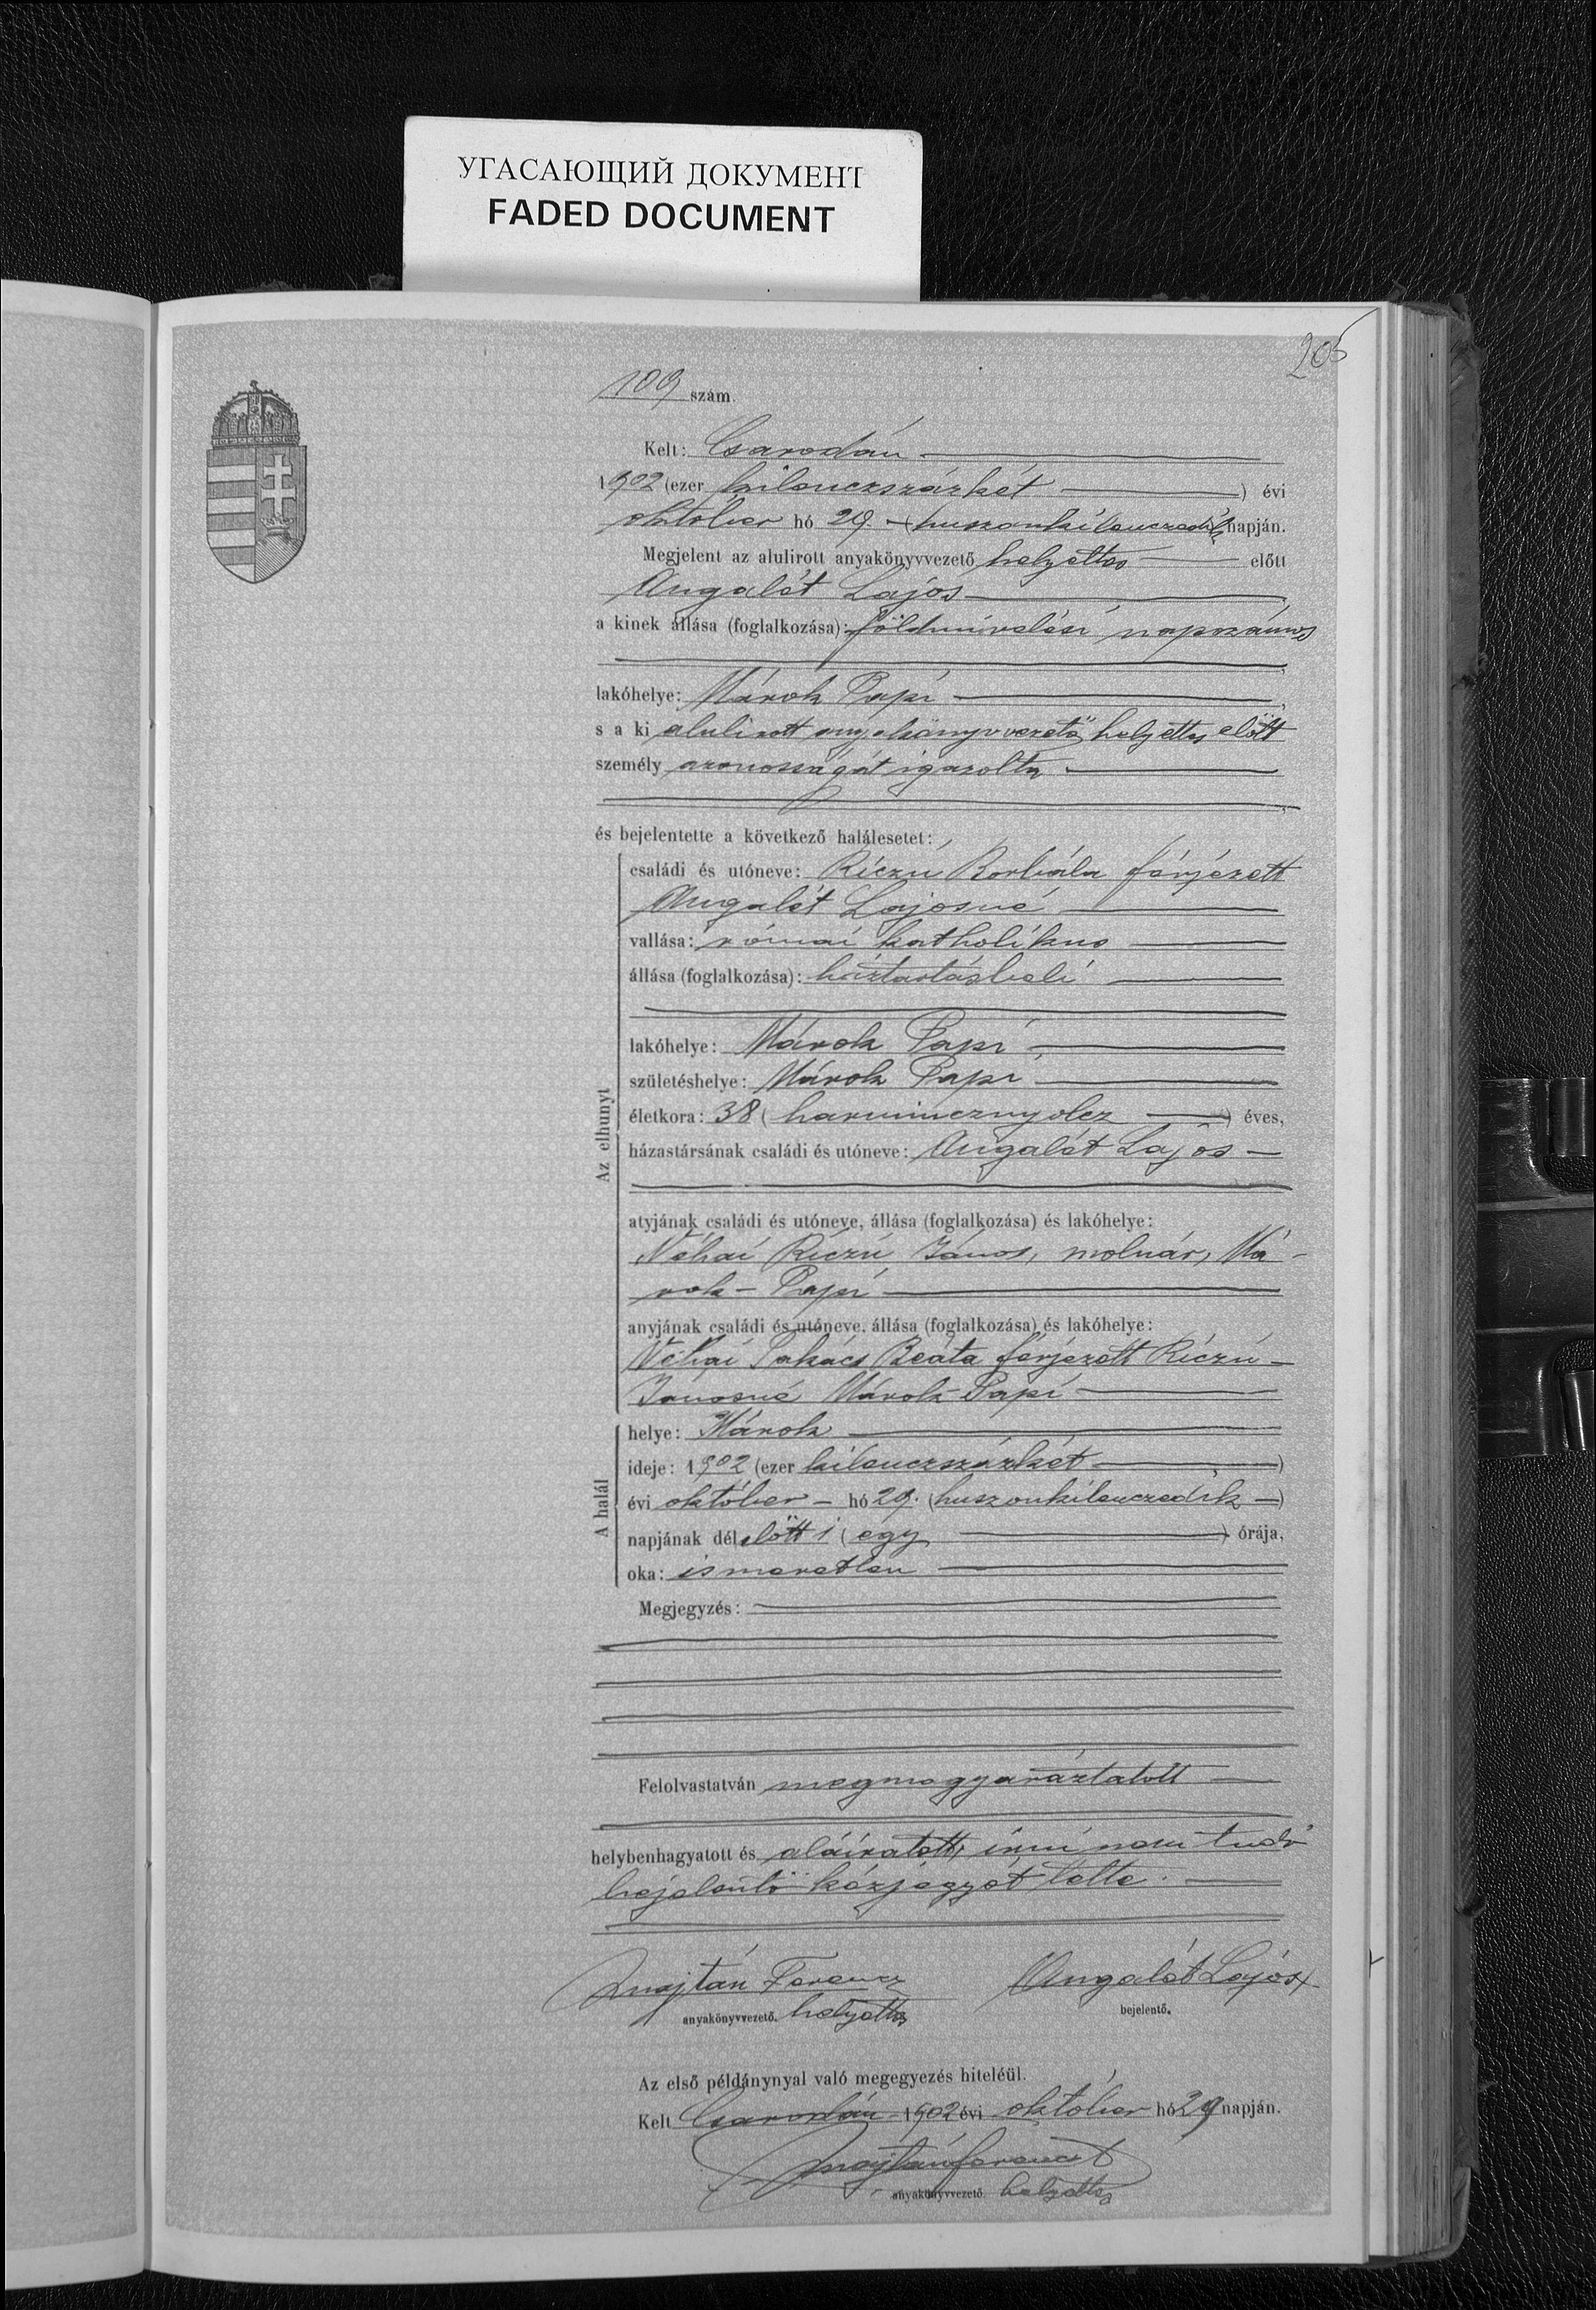 УГАСАЮЩИЙ ДОКУМЕНТ
FADED DOCUMENT
205
109 szám.
Kelt: Csarodán
1902 (ezer kilenczszázkét) évi
október hó 29. (huszonkilenczedik) napján.
Megjelent az alulirott anyakönyvvezető helyettes előtt
Angalét Lajos
a kinek állása (foglalkozása): földmivelési napszámos
lakóhelye: Márok Papi
s a ki alulirott anyakönyvvezető helyettes előtt
személy azonosságát igazolta
és bejelentette a következő halálesetet:
családi és utóneve: Riczu Borbála férjezett
Angalét Lajosné
vallása: római katholikus
állása (foglalkozása): háztartásbeli
lakóhelye: Márok Papi
születéshelye: Márok Papi
életkora: 38 (harmincznyolcz) éves,
házastársának családi és utóneve: Angalét Lajos
Az elhunyt
atyjának családi és utóneve, állása (foglalkozása) és lakóhelye:
Néhai Riczu János, molnár, Má-
rok-Papi
anyjának családi és utóneve, állása (foglalkozása) és lakóhelye:
Néhai Takács Beáta férjezett Riczu
Jánosné Márok-Papi
A halál
helye: Márok
ideje: 1902 (ezer kilenczszázkét)
évi október hó 29. (huszonkilenczedik)
napjának délelőtt 1 (egy) órája,
oka: ismeretlen
Megjegyzés:
Felolvastatván megmagyaráztatott
helybenhagyatott és aláiratott, irni nem tudó
bejelentő kézjegyét tette.
Majtán Ferencz Angalét Lajos x
anyakönyvvezető. helyettes bejelentő.
Az első példánynyal való megegyezés hiteléül.
Kelt Csarodán 1902 évi október hó 29 napján.
Majtán Ferencz
anyakönyvvezető. helyettes